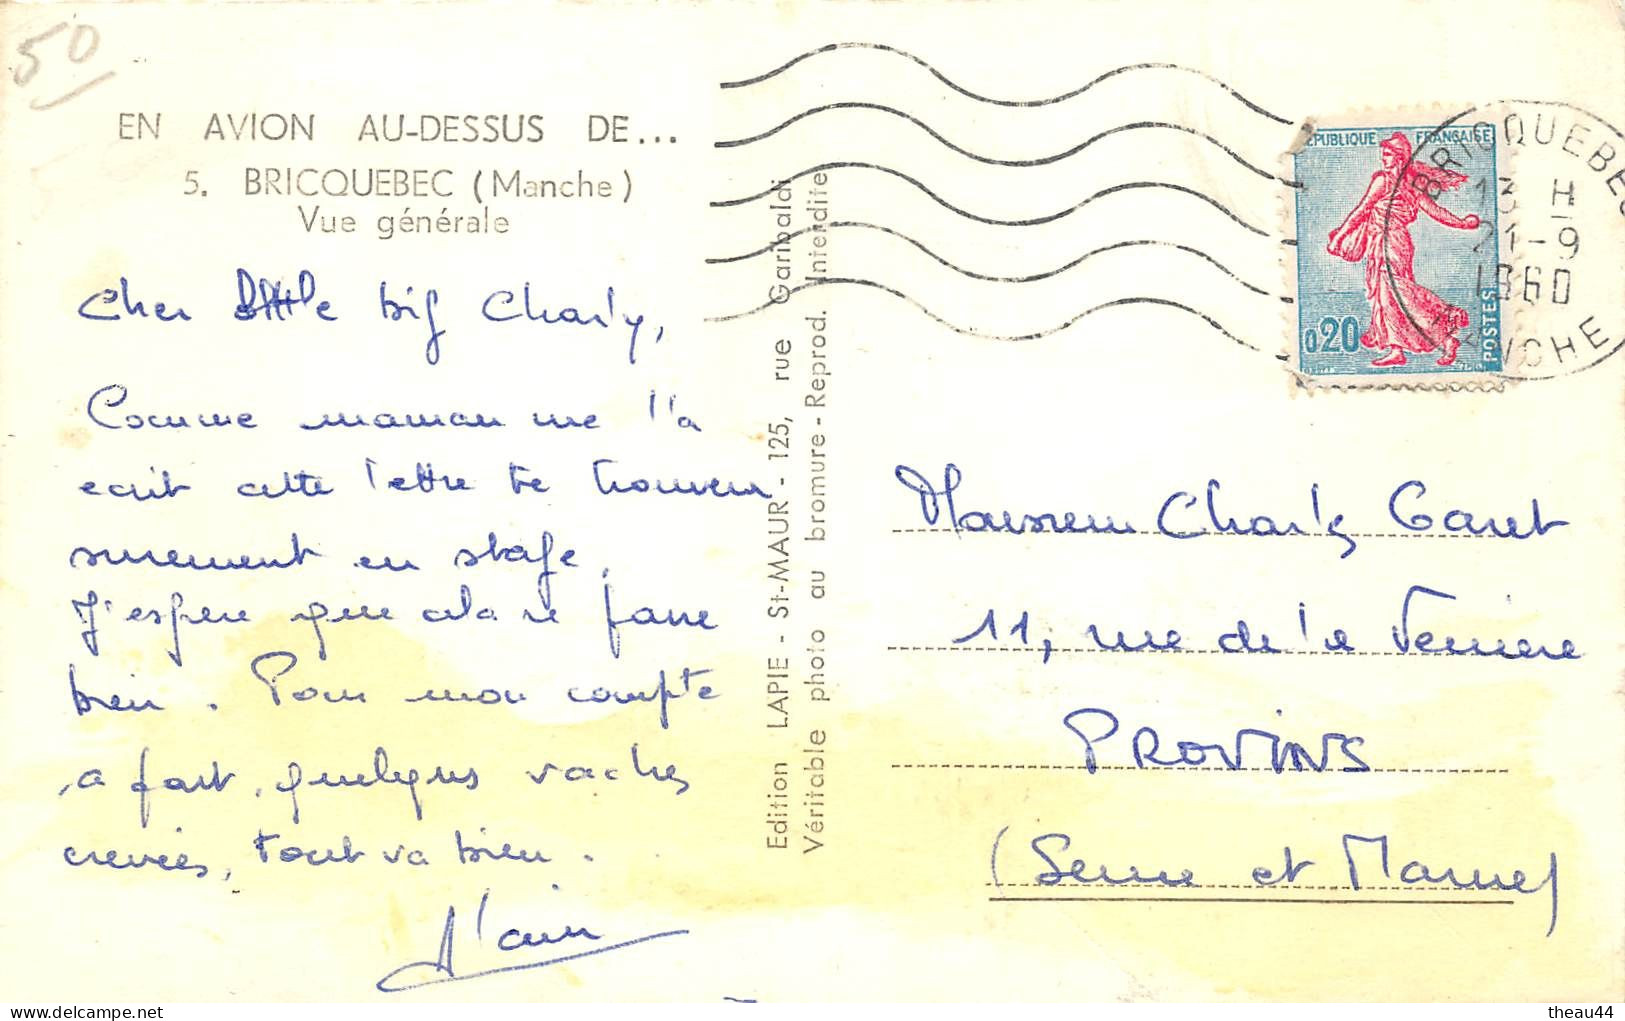 50
EN AVION AU-DESSUS DE...
5. BRICQUEBEC (Manche)
Vue générale
Cher little big Charly,
Comme maman me l'a
écrit cette lettre te trouvera
surement en stage.
J'espère que cela se passe
bien. Pour mon compte
à part quelques vaches
crevées, tout va bien.
Alain
Edition LAPIE - St-MAUR - 125, rue Garibaldi
Véritable photo au bromure - Reprod. Interdite
REPUBLIQUE FRANÇAISE
0,20
POSTES
BRICQUEBEC
13 H
21-9
1960
MANCHE
Monsieur Charles Garet
11, rue de la Verrière
PROVINS
(Seine et Marne)
theau44